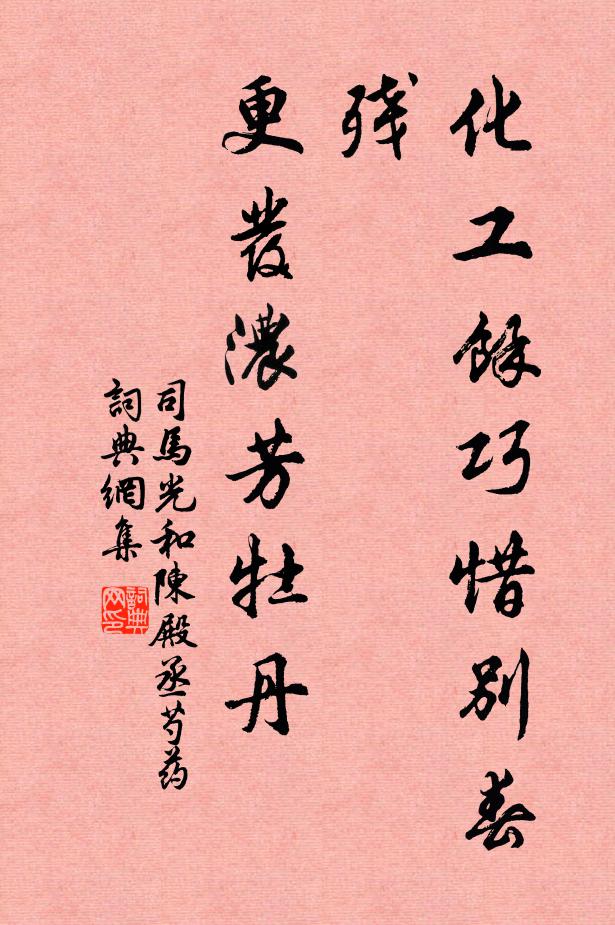 化工餘巧惜别春
残
更發濃芳牡丹
司馬光和陳殿丞芍药
詞典網集
詞典网印